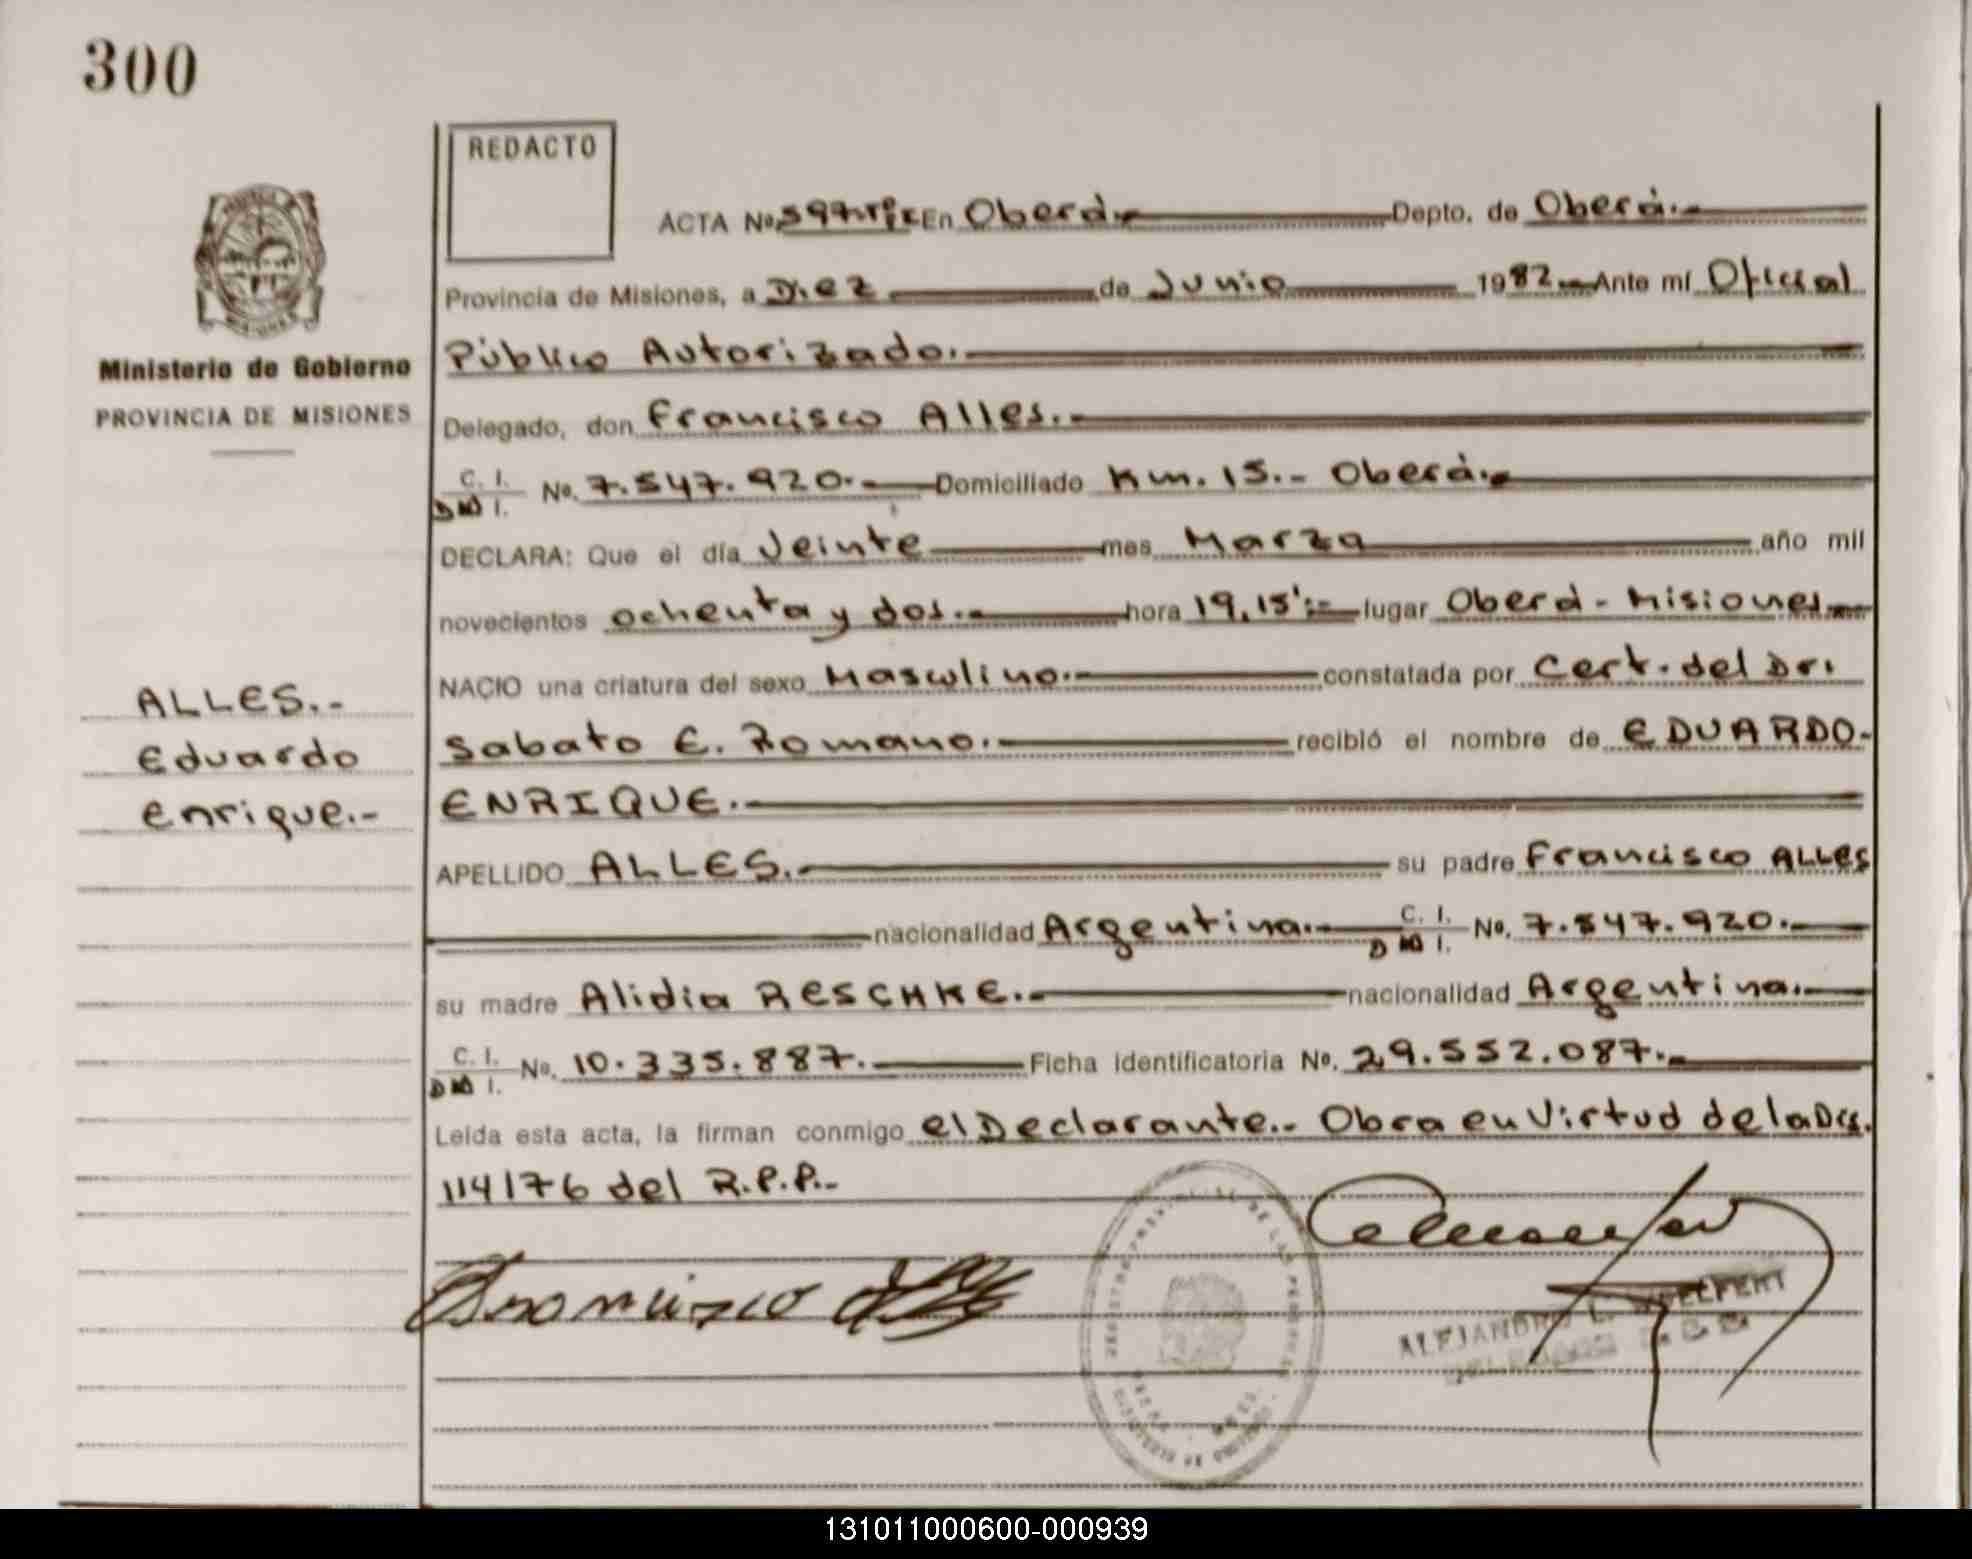 300
REDACTO
ACTA Nº 597 En Oberá.- Depto. de Oberá.-
Provincia de Misiones, a Diez de Junio 1982.- Ante mí Oficial
Ministerio de Gobierno
PROVINCIA DE MISIONES
Público Autorizado.-
Delegado, don Francisco Alles.-
C. I.
D M I. Nº. 7.547.920.- Domiciliado Km. 15.- Oberá.-
DECLARA: Que el día Veinte mes Marzo año mil
novecientos ochenta y dos.- hora 19,15'.- lugar Oberá - Misiones.-
NACIO una criatura del sexo Masculino.- constatada por Cert. del Dr.
Sabato E. Romano.- recibió el nombre de EDUARDO-
ENRIQUE.-
ALLES.-
Eduardo
Enrique.-
APELLIDO ALLES.- su padre Francisco ALLES
nacionalidad Argentina.- C. I. D M I. Nº. 7.547.920.-
su madre Alidia RESCHKE.- nacionalidad Argentina.-
C. I. D M I. Nº. 10.335.887.- Ficha identificatoria Nº. 29.552.087.-
Leída esta acta, la firman conmigo el Declarante.- Obra en Virtud de la Dis.
114176 del R.P.P.-
Francisco Alles
ALEJANDRO L.
131011000600-000939